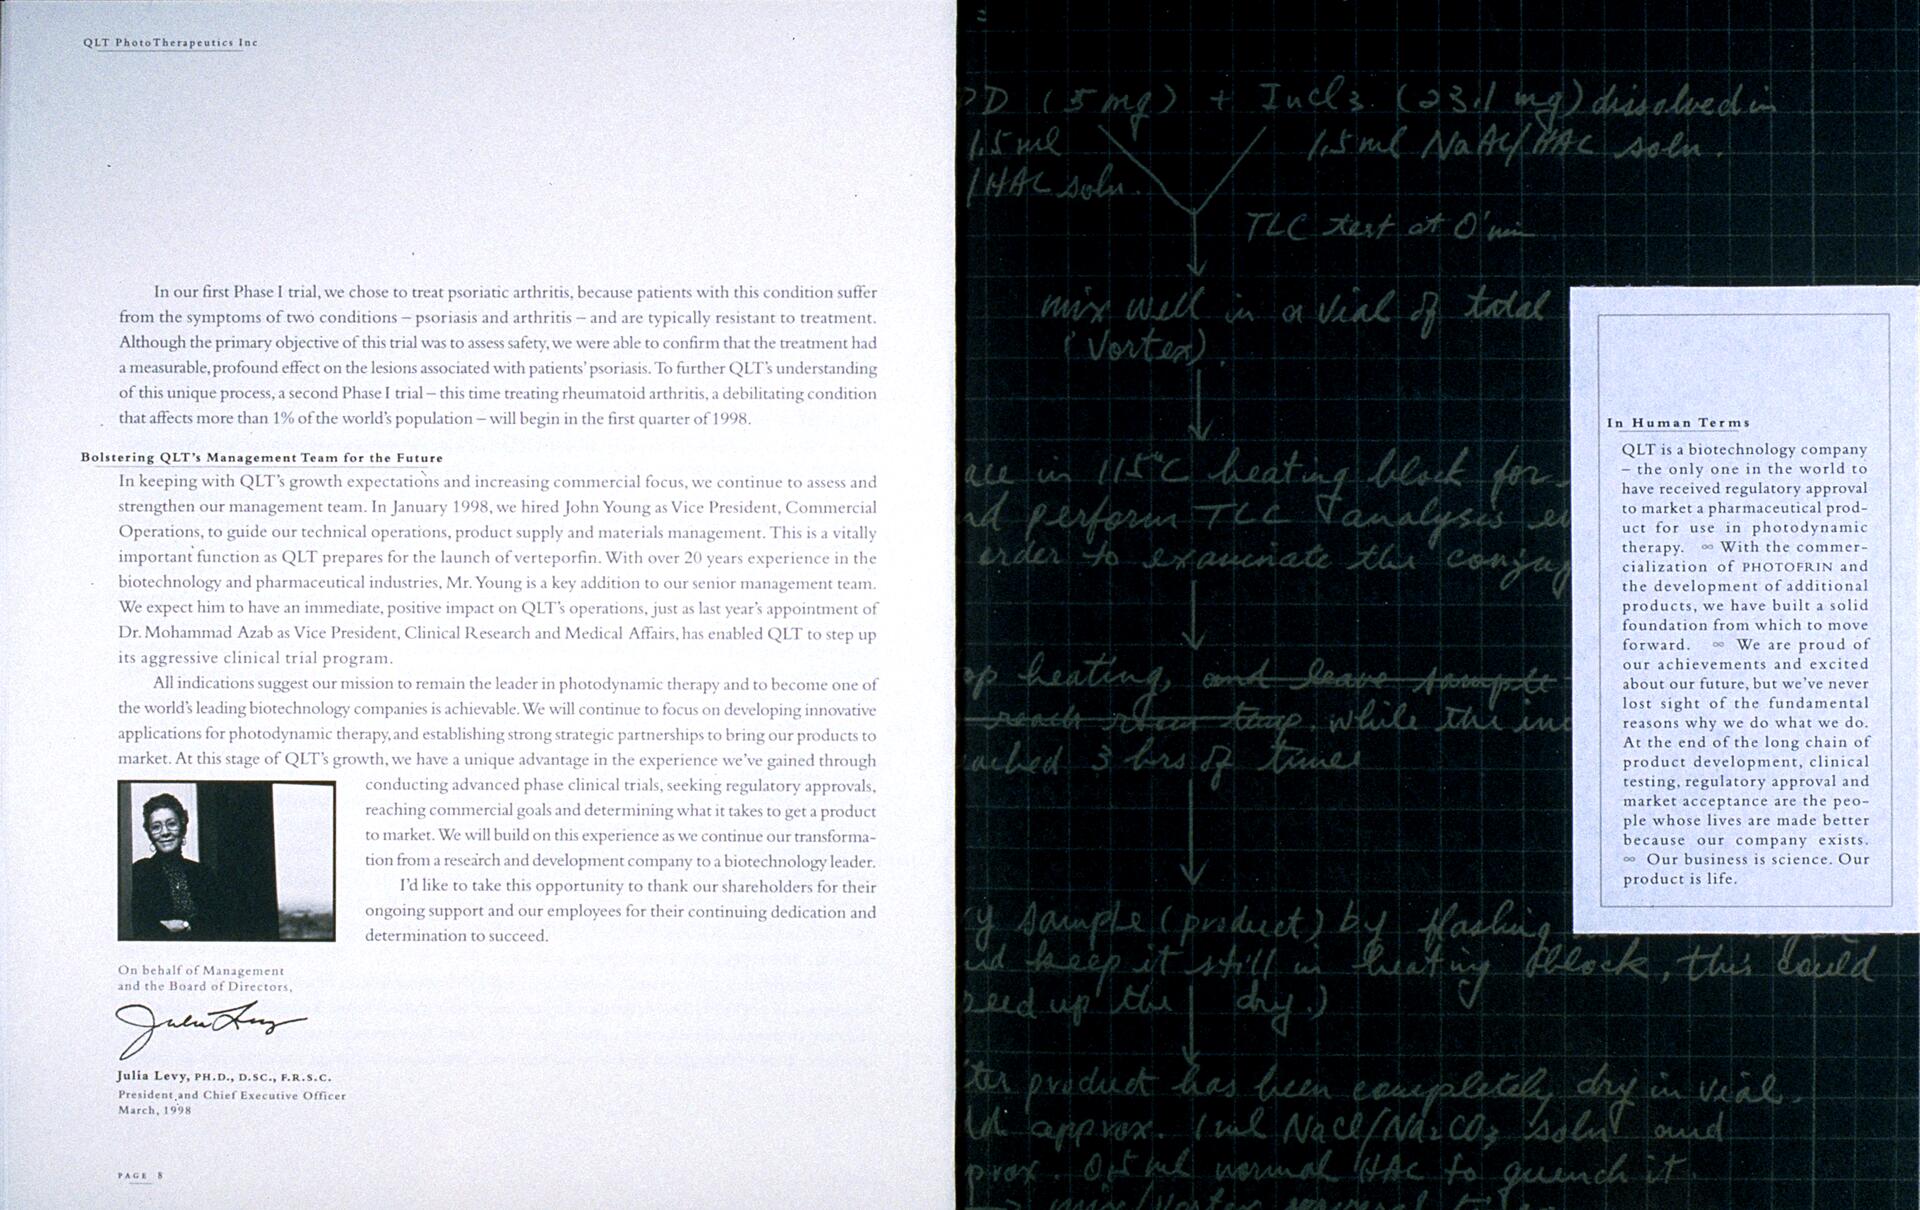 QLT PhotoTherapeutics Inc
In our first Phase I trial, we chose to treat psoriatic arthritis, because patients with this condition suffer
from the symptoms of two conditions – psoriasis and arthritis – and are typically resistant to treatment.
Although the primary objective of this trial was to assess safety, we were able to confirm that the treatment had
a measurable, profound effect on the lesions associated with patients' psoriasis. To further QLT's understanding
of this unique process, a second Phase I trial – this time treating rheumatoid arthritis, a debilitating condition
that affects more than 1% of the world's population – will begin in the first quarter of 1998.
Bolstering QLT's Management Team for the Future
In keeping with QLT's growth expectations and increasing commercial focus, we continue to assess and
strengthen our management team. In January 1998, we hired John Young as Vice President, Commercial
Operations, to guide our technical operations, product supply and materials management. This is a vitally
important function as QLT prepares for the launch of verteporfin. With over 20 years experience in the
biotechnology and pharmaceutical industries, Mr. Young is a key addition to our senior management team.
We expect him to have an immediate, positive impact on QLT's operations, just as last year's appointment of
Dr. Mohammad Azab as Vice President, Clinical Research and Medical Affairs, has enabled QLT to step up
its aggressive clinical trial program.
All indications suggest our mission to remain the leader in photodynamic therapy and to become one of
the world's leading biotechnology companies is achievable. We will continue to focus on developing innovative
applications for photodynamic therapy, and establishing strong strategic partnerships to bring our products to
market. At this stage of QLT's growth, we have a unique advantage in the experience we've gained through
conducting advanced phase clinical trials, seeking regulatory approvals,
reaching commercial goals and determining what it takes to get a product
to market. We will build on this experience as we continue our transforma-
tion from a research and development company to a biotechnology leader.
I'd like to take this opportunity to thank our shareholders for their
ongoing support and our employees for their continuing dedication and
determination to succeed.
On behalf of Management
and the Board of Directors,
Julia Levy
Julia Levy, PH.D., D.SC., F.R.S.C.
President and Chief Executive Officer
March, 1998
PAGE 8
D (5 mg) + InCl3 (23.1 mg) dissolved in
1.5 ml 1.5 ml NaAC/HAC soln.
/HAC soln.
TLC test at 0 min
mix well in a vial of total
(Vortex).
in 115°C heating block for
perform TLC analysis
order to examinate the
heating, and leave sample
reach room temp. while the
3 hrs of time
sample (product) by flashing
keep it still in heating block, this could
up the dry.)
product has been completely dry in vial.
approx. 1 ml NaCl/Na2CO3 soln and
0.5 ml normal HAC to quench it
mix/Vortex
In Human Terms
QLT is a biotechnology company
– the only one in the world to
have received regulatory approval
to market a pharmaceutical prod-
uct for use in photodynamic
therapy. ∞ With the commer-
cialization of PHOTOFRIN and
the development of additional
products, we have built a solid
foundation from which to move
forward. ∞ We are proud of
our achievements and excited
about our future, but we've never
lost sight of the fundamental
reasons why we do what we do.
At the end of the long chain of
product development, clinical
testing, regulatory approval and
market acceptance are the peo-
ple whose lives are made better
because our company exists.
∞ Our business is science. Our
product is life.